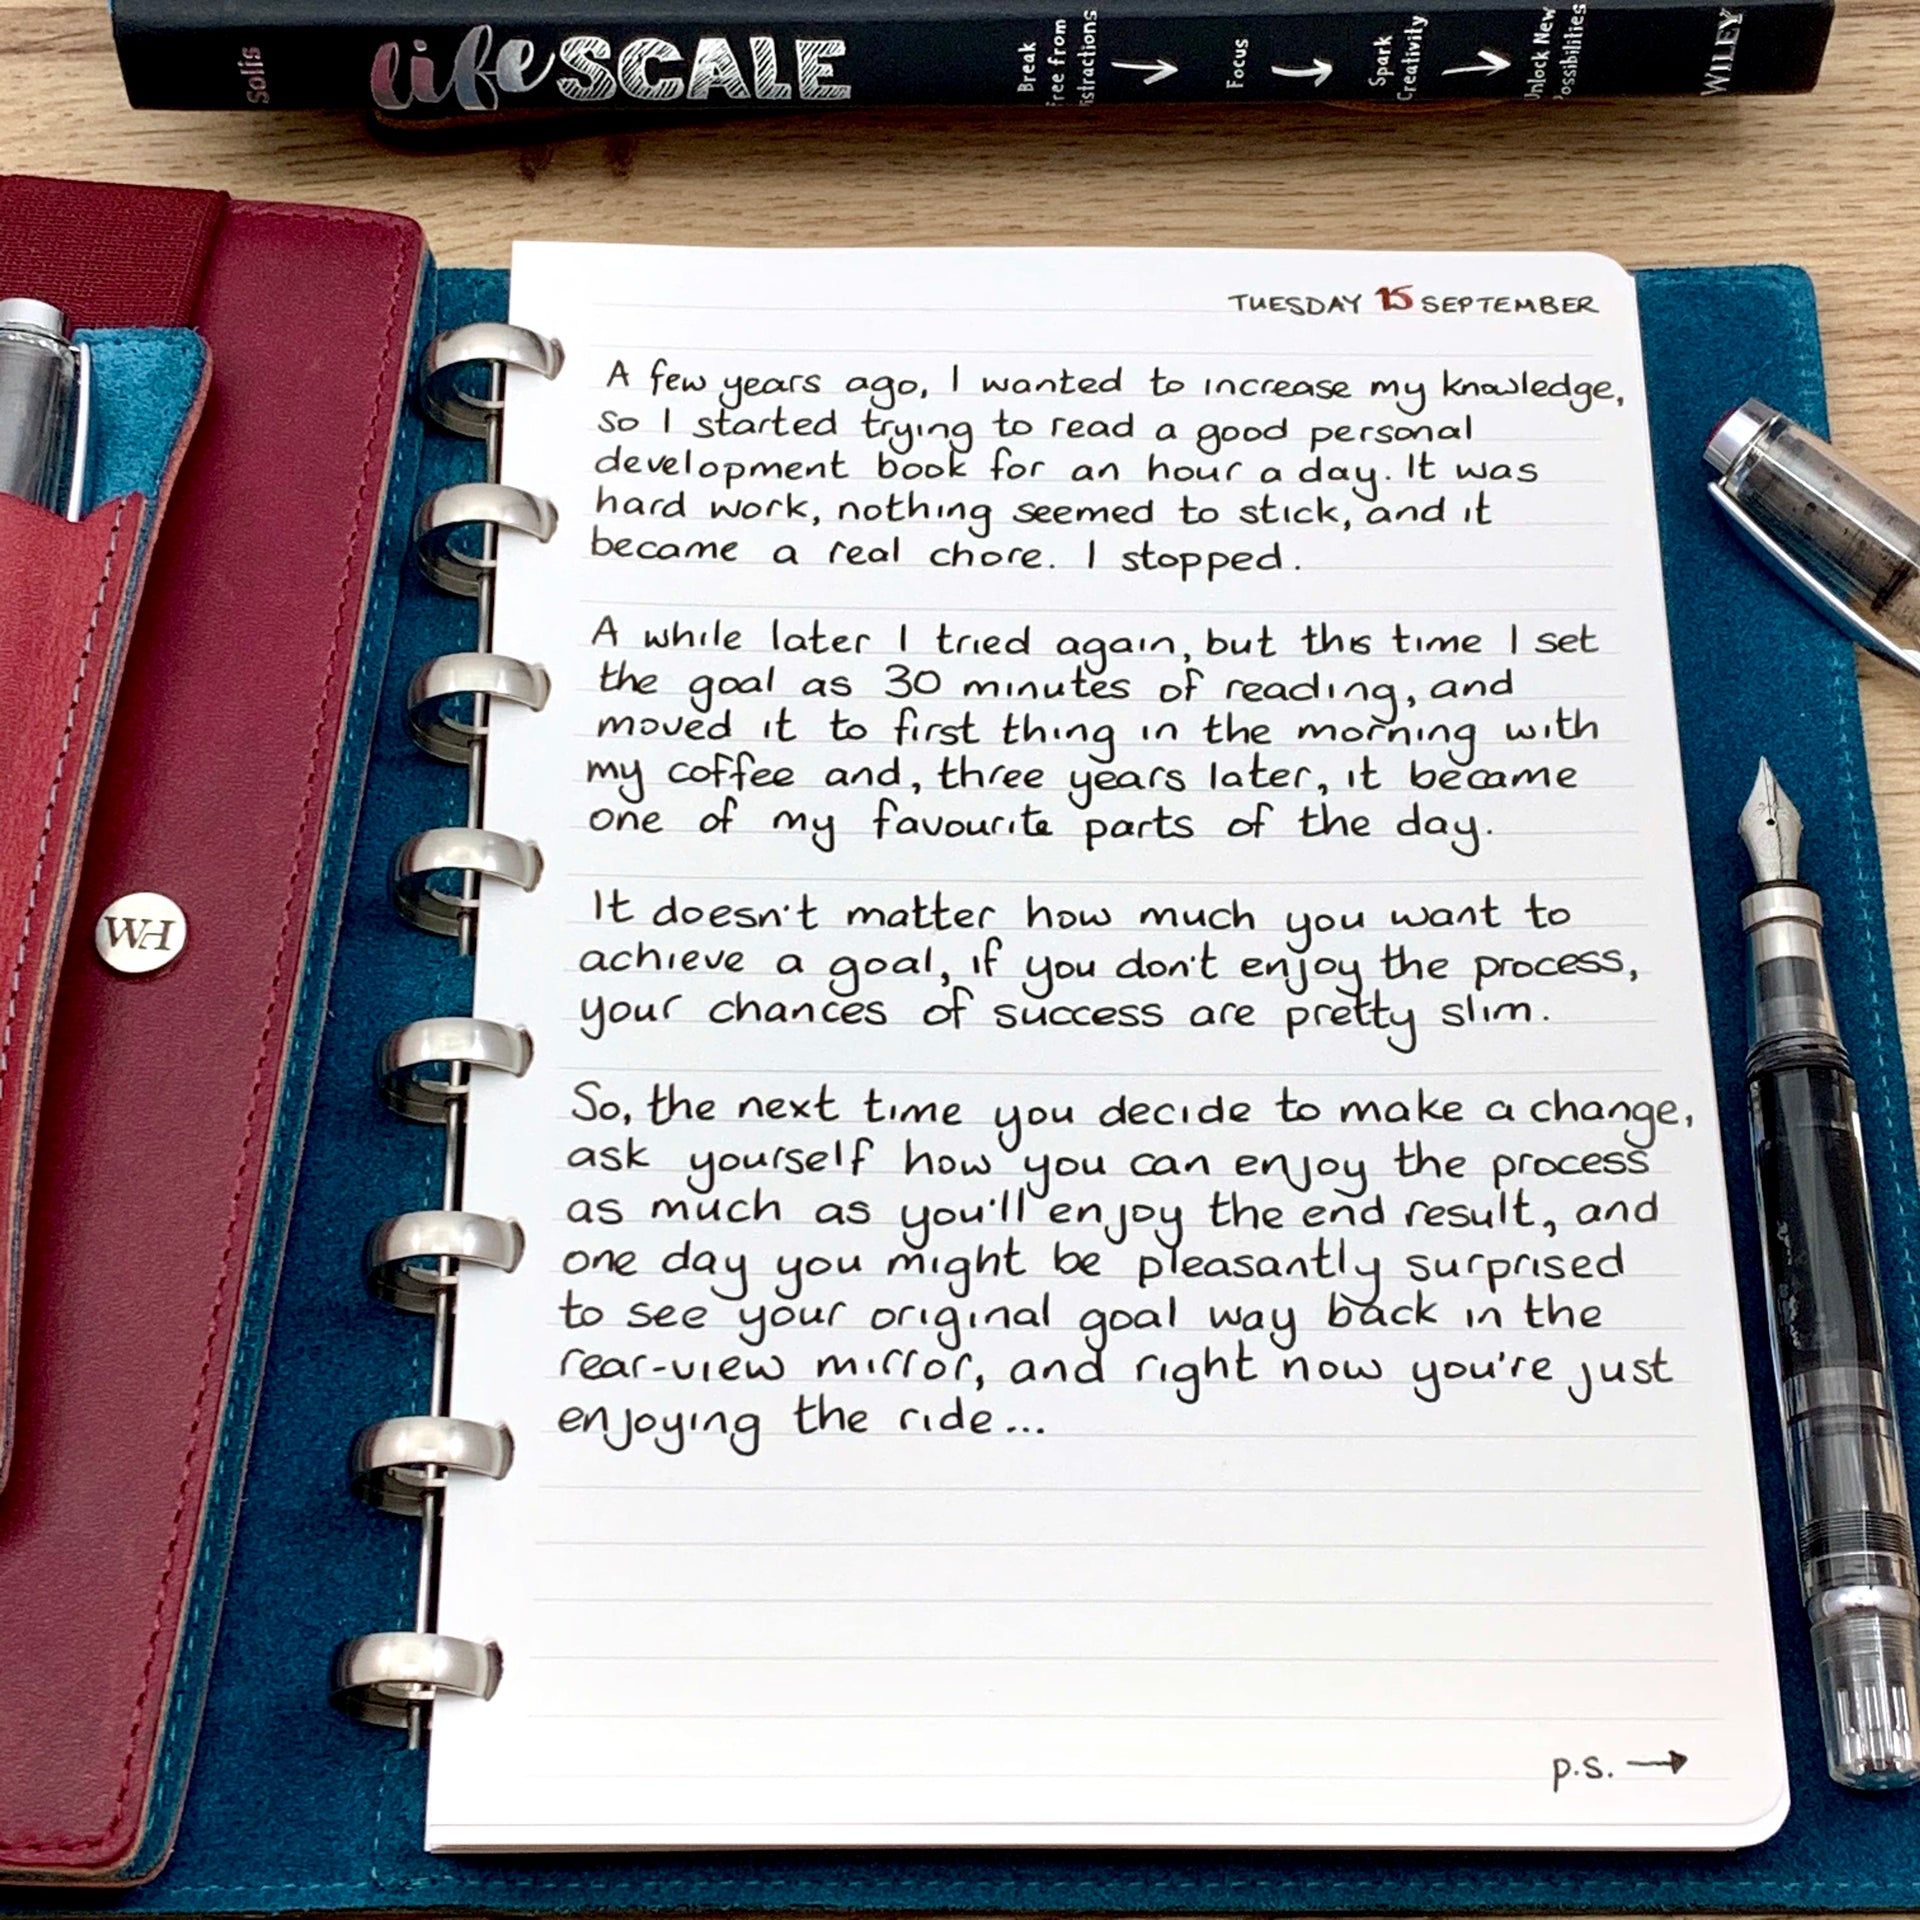 Solis
lifeSCALE
Break
Free from
Distractions
Focus
Spark
Creativity
Unlock New
Possibilities
WILEY
TUESDAY 15 SEPTEMBER
A few years ago, I wanted to increase my knowledge,
so I started trying to read a good personal
development book for an hour a day. It was
hard work, nothing seemed to stick, and it
became a real chore. I stopped.
A while later I tried again, but this time I set
the goal as 30 minutes of reading, and
moved it to first thing in the morning with
my coffee and, three years later, it became
one of my favourite parts of the day.
It doesn't matter how much you want to
achieve a goal, if you don't enjoy the process,
your chances of success are pretty slim.
So, the next time you decide to make a change,
ask yourself how you can enjoy the process
as much as you'll enjoy the end result, and
one day you might be pleasantly surprised
to see your original goal way back in the
rear-view mirror, and right now you're just
enjoying the ride...
p.s. →
WH